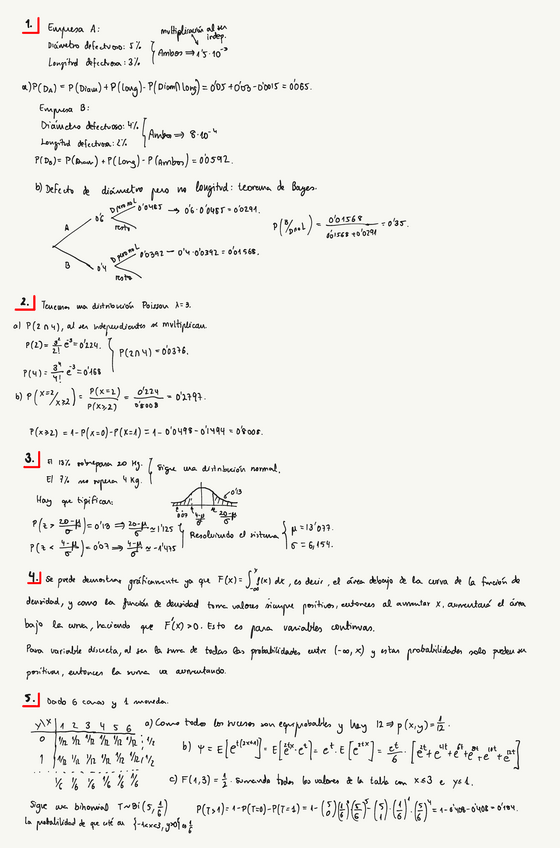 1. Empresa A:
multiplicación al ser indep.
Diámetro defectuoso: 5%
Longitud defectuosa: 3%
Ambos ⇒ 1'5·10⁻³
a) P(D_A) = P(Diam) + P(Long) - P(Diam∩Long) = 0'05 + 0'03 - 0'0015 = 0'0785.
Empresa B:
Diámetro defectuoso: 4%
Longitud defectuosa: 2%
Ambos ⇒ 8·10⁻⁴
P(D_B) = P(Diam) + P(Long) - P(Ambos) = 0'0592.
b) Defecto de diámetro pero no longitud: teorema de Bayes.
A 0'6 D pero no L 0'0485 → 0'6·0'0485 = 0'0291.
resto
B 0'4 D pero no L 0'0392 — 0'4·0'0392 = 0'01568.
resto
P(B/D no L) = 0'01568 / 0'01568 + 0'0291 = 0'35.
2. Tenemos una distribución Poisson λ=3.
a) P(2∩4), al ser independientes se multiplican
P(2) = 3²/2! e⁻³ = 0'224.
P(4) = 3⁴/4! e⁻³ = 0'168
P(2∩4) = 0'0376.
b) P(X=2/X≥2) = P(X=2)/P(X≥2) = 0'224/0'8008 = 0'2797.
P(X≥2) = 1 - P(X=0) - P(X=1) = 1 - 0'0498 - 0'1494 = 0'8008.
3. El 13% sobrepasa 20 Kg.
El 7% no supera 4 Kg.
Sigue una distribución normal.
Hay que tipificar:
0'13
0'07 4-μ/σ 20-μ/σ
P(z > 20-μ/σ) = 0'13 ⇒ 20-μ/σ ≃ 1'125
P(z < 4-μ/σ) = 0'07 ⇒ 4-μ/σ ≃ -1'475
Resolviendo el sistema
μ = 13'077.
σ = 6,154.
4. Se puede demostrar gráficamente ya que F(x) = ∫_{-∞}^{x} f(x) dx, es decir, el área debajo de la curva de la función de
densidad, y como la función de densidad toma valores siempre positivos, entonces al aumentar x, aumentará el área
bajo la curva, haciendo que F'(x) > 0. Esto es para variables continuas.
Para variable discreta, al ser la suma de todas las probabilidades entre (-∞, x) y estas probabilidades solo pueden ser
positivas, entonces la suma va aumentando.
5. Dado 6 caras y 1 moneda.
a) Como todos los sucesos son equiprobables y hay 12 ⇒ p(x,y) = 1/12.
Y\X 1 2 3 4 5 6
0 1/12 1/12 1/12 1/12 1/12 1/12 1/2
1 1/12 1/12 1/12 1/12 1/12 1/12 1/2
1/6 1/6 1/6 1/6 1/6 1/6
b) Ψ = E[e^{t(2x+1)}] = E[e^{2tx}·e^t] = e^t·E[e^{2tx}] = e^t/6·[e^{2t}+e^{4t}+e^{6t}+e^{8t}+e^{10t}+e^{12t}]
c) F(1,3) = 1/2. Sumando todos los valores de la tabla con x≤3 e y≤1.
Sigue una binomial T~Bi(5, 1/6)
la probabilidad de que esté en {-1<x<3, y>0} es 1/6
P(T>1) = 1 - P(T=0) - P(T=1) = 1 - (5 0)(1/6)⁰(5/6)⁵ - (5 1)·(1/6)¹·(5/6)⁴ = 1 - 0'408 - 0'408 = 0'184.